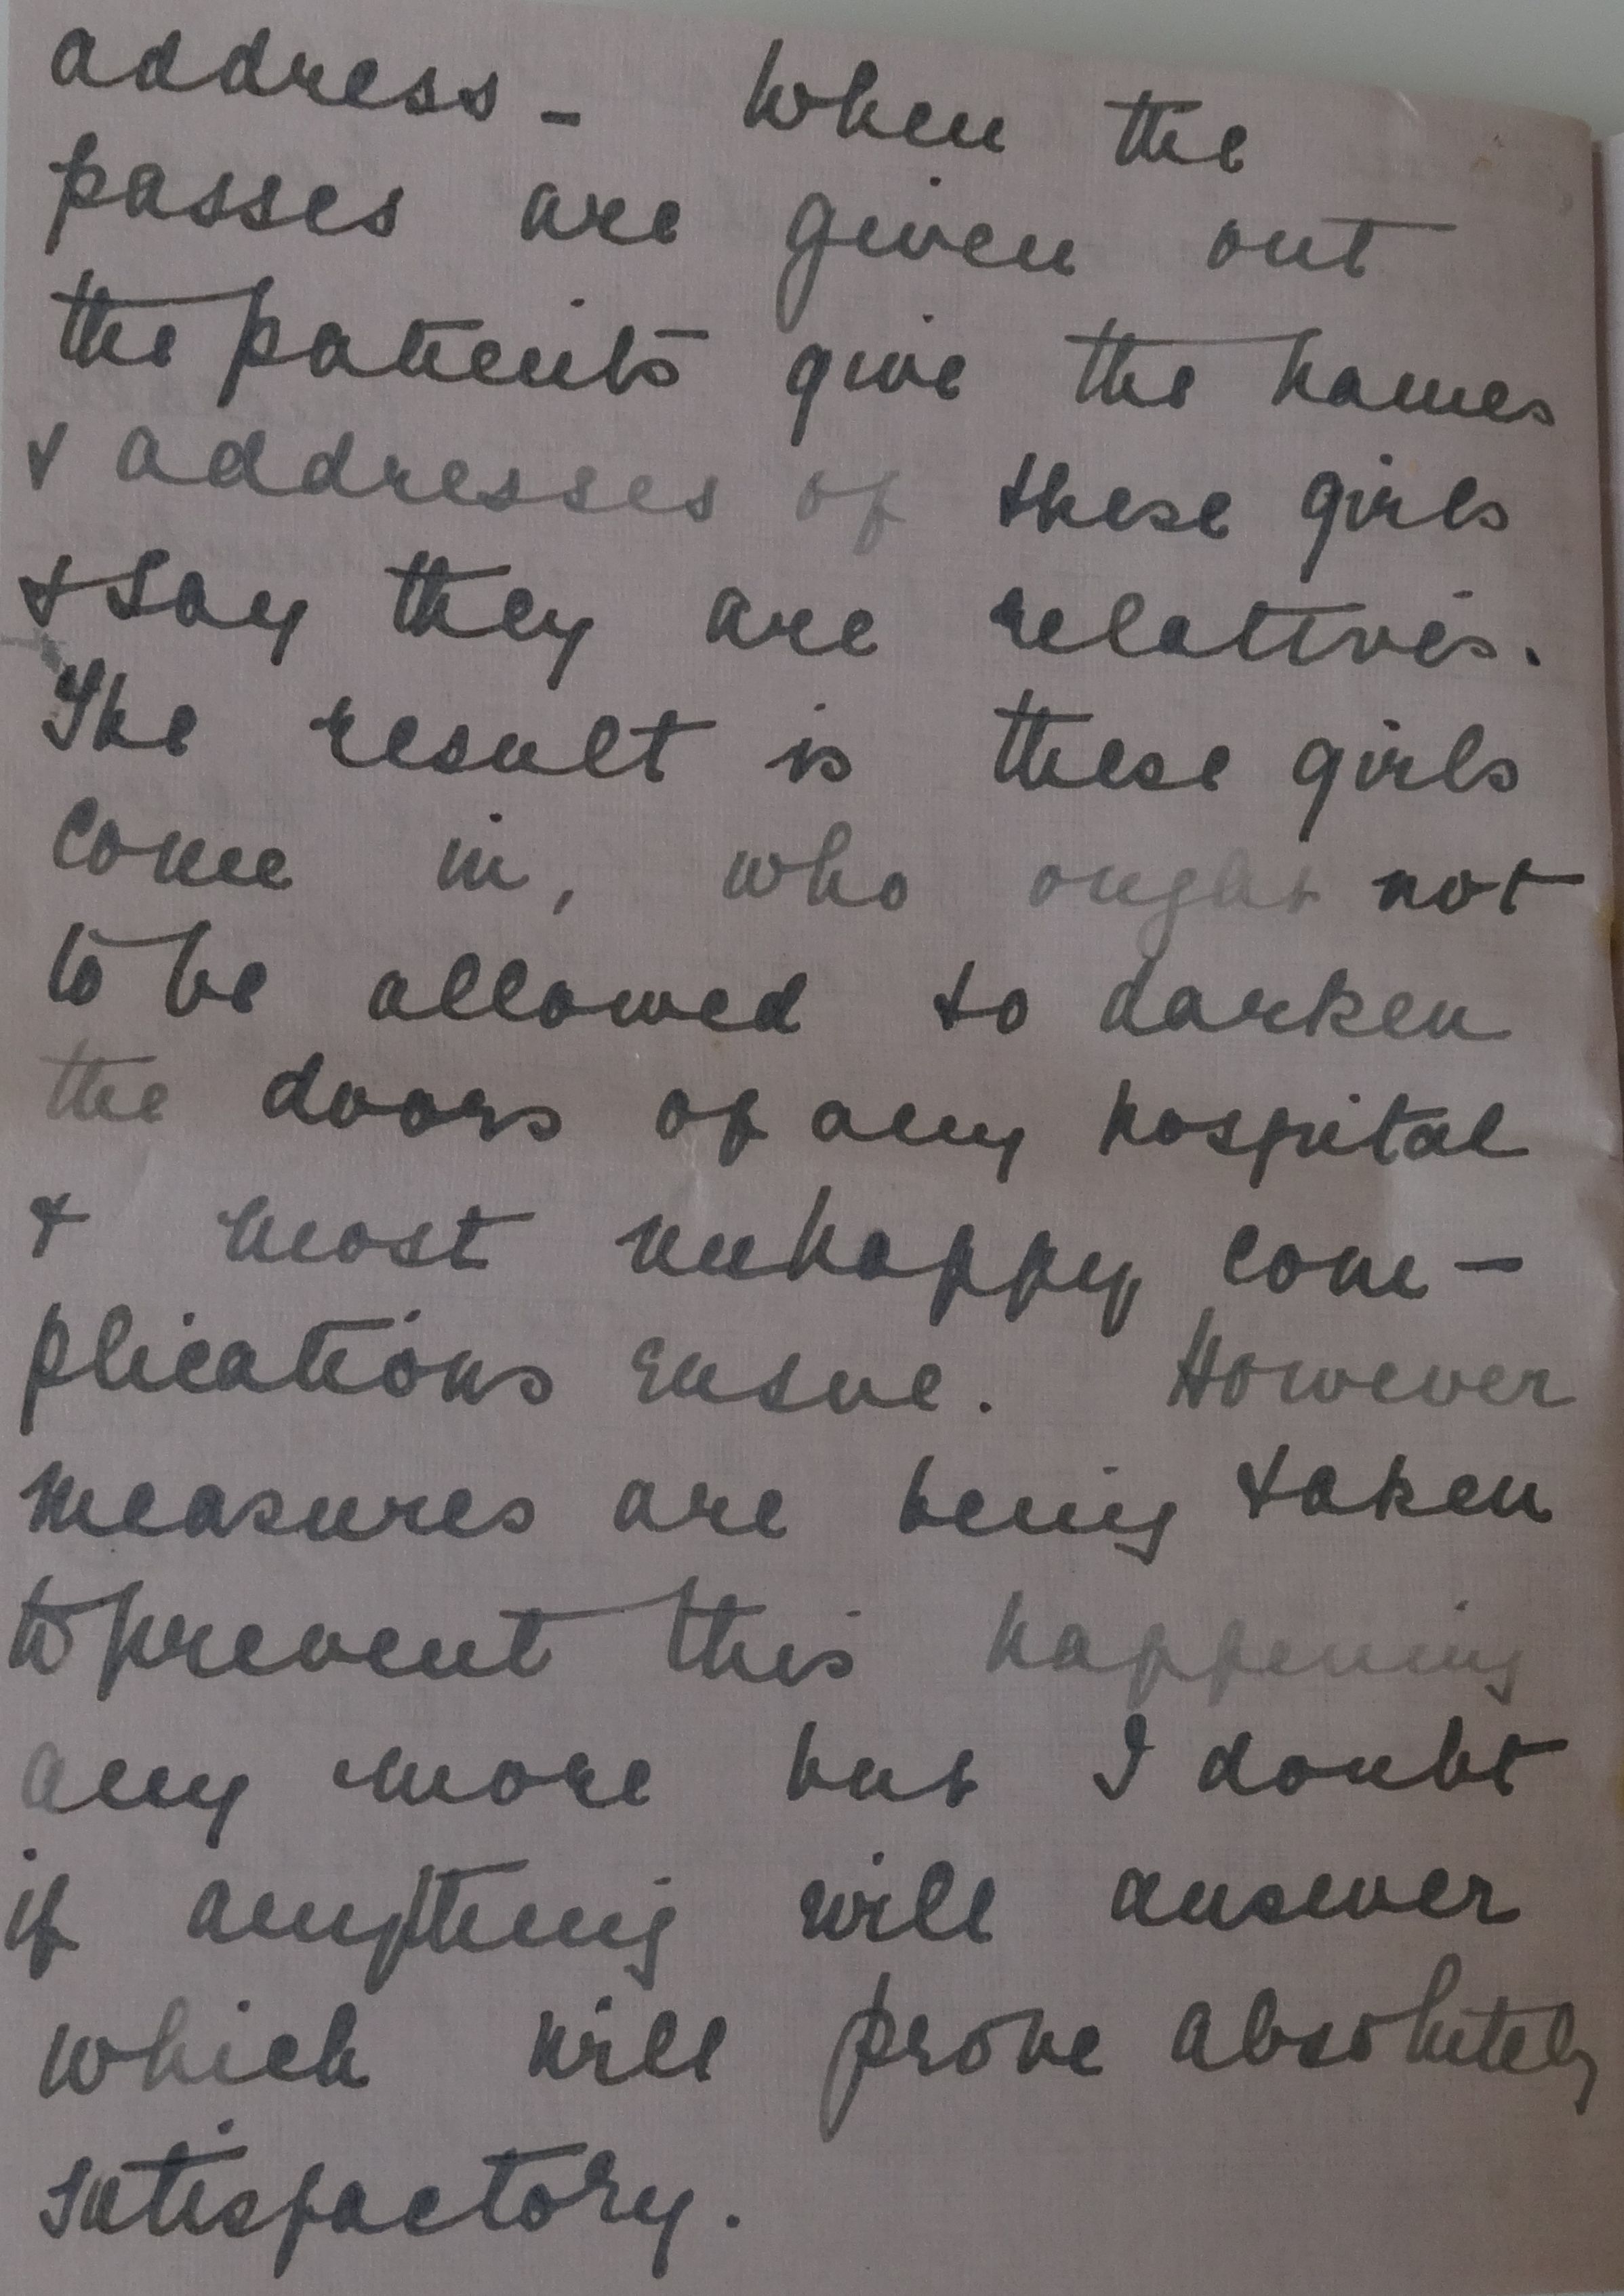 address - When the
passes are given out
the patients give the names
& addresses of these girls
& say they are relatives.
The result is these girls
come in, who ought not
to be allowed to darken
the doors of any hospital
& most unhappy com-
plications ensue. However
measures are being taken
to prevent this happening
any more but I doubt
if anything will answer
which will prove absolutely
satisfactory.